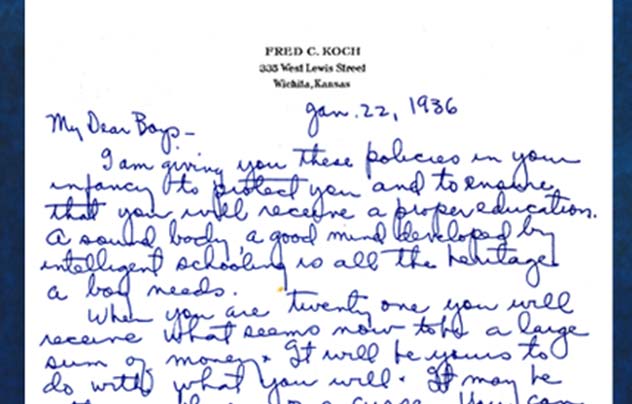 FRED C. KOCH
335 West Lewis Street
Wichita, Kansas
Jan. 22, 1936
My Dear Boys-
I am giving you these policies in your
infancy to protect you and to ensure
that you will receive a proper education.
A sound body, a good mind developed by
intelligent schooling is all the heritage
a boy needs.
When you are twenty one you will
receive what seems now to be a large
sum of money. It will be yours to
do with what you will. It may be
or a curse. You can